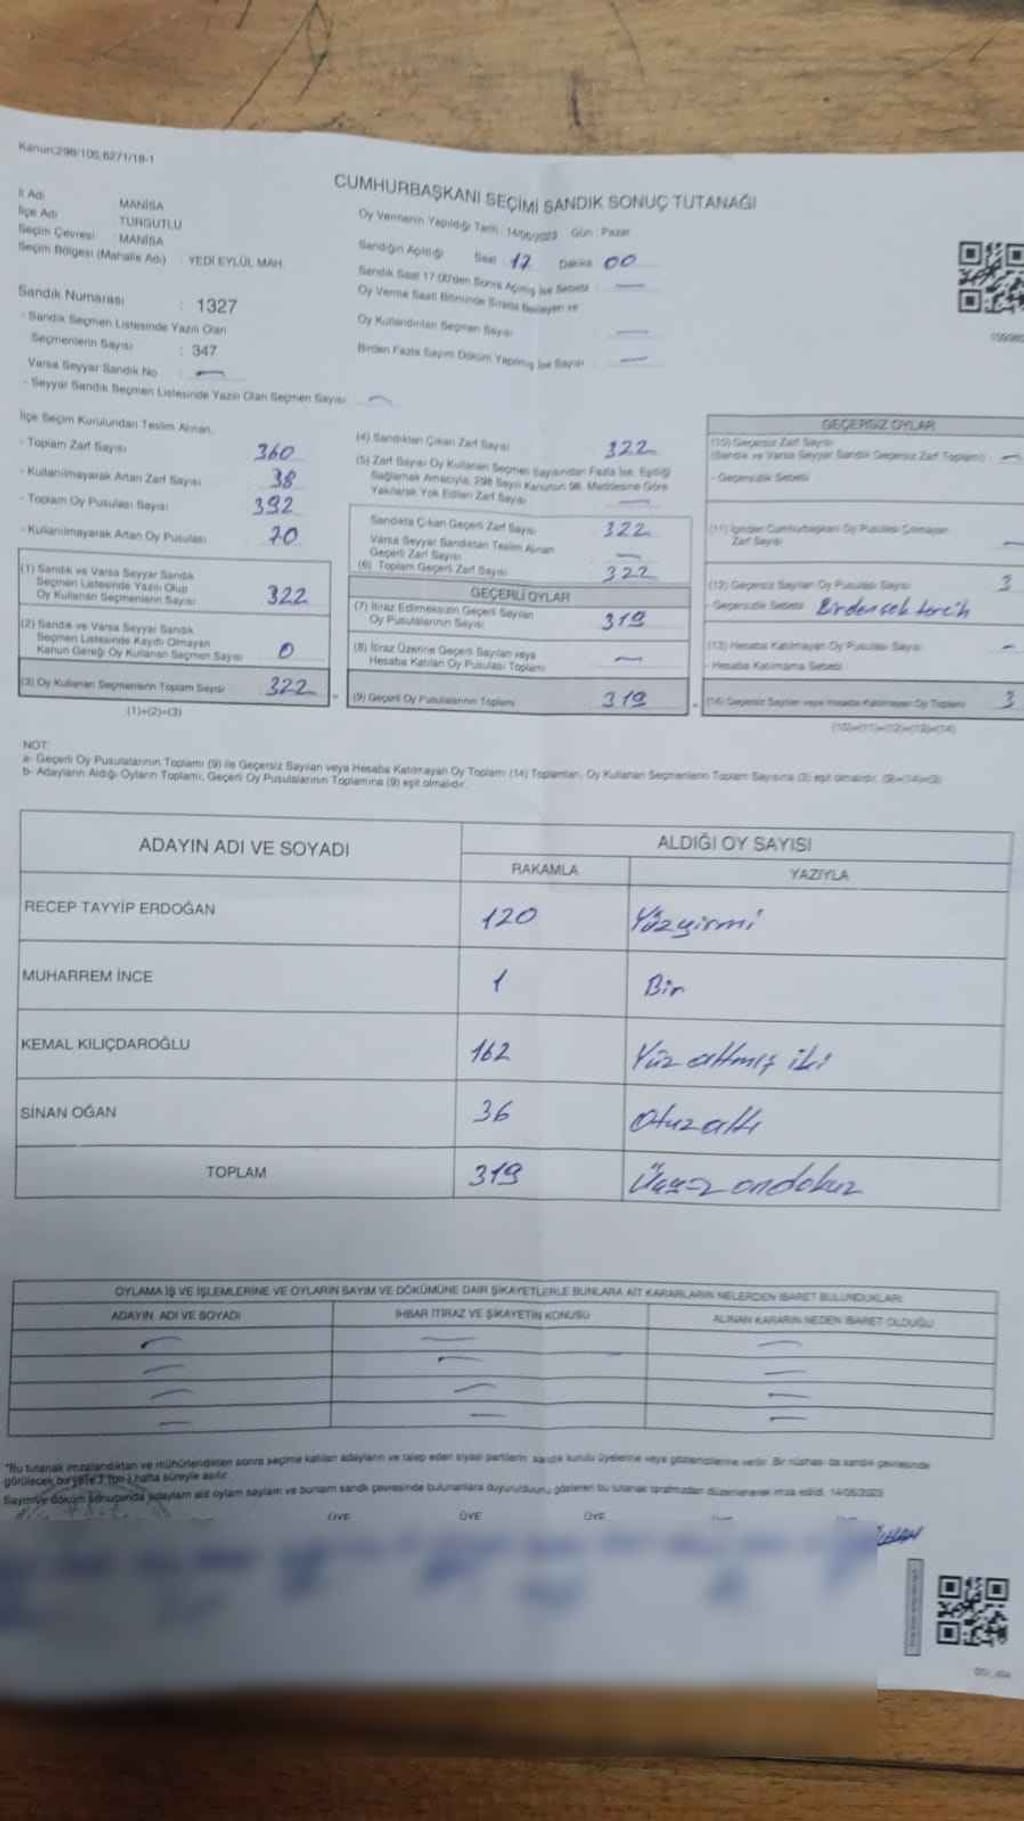 Kanun:298/105,6271/18-1
CUMHURBAŞKANI SEÇİMİ SANDIK SONUÇ TUTANAĞI
İl Adı MANİSA
İlçe Adı TURGUTLU
Seçim Çevresi MANİSA
Seçim Bölgesi (Mahalle Adı) YEDİ EYLÜL MAH.
Sandık Numarası : 1327
- Sandık Seçmen Listesinde Yazılı Olan
Seçmenlerin Sayısı : 347
Varsa Seyyar Sandık No —
- Seyyar Sandık Seçmen Listesinde Yazılı Olan Seçmen Sayısı —
Oy Vermenin Yapıldığı Tarih : 14/05/2023 Gün : Pazar
Sandığın Açıldığı Saat 17 Dakika 00
Sandık Saat 17:00'den Sonra Açılmış İse Sebebi : —
Oy Verme Saati Bitiminde Sırada Bekleyen ve
Oy Kullandırılan Seçmen Sayısı —
Birden Fazla Sayım Döküm Yapılmış İse Sayısı —
İlçe Seçim Kurulundan Teslim Alınan,
- Toplam Zarf Sayısı 360
- Kullanılmayarak Artan Zarf Sayısı 38
- Toplam Oy Pusulası Sayısı 392
- Kullanılmayarak Artan Oy Pusulası 70
(1) Sandık ve Varsa Seyyar Sandık
Seçmen Listesinde Yazılı Olup
Oy Kullanan Seçmenlerin Sayısı 322
(2) Sandık ve Varsa Seyyar Sandık
Seçmen Listesinde Kayıtlı Olmayan
Kanun Gereği Oy Kullanan Seçmen Sayısı 0
(3) Oy Kullanan Seçmenlerin Toplam Sayısı 322
(1)+(2)=(3)
(4) Sandıktan Çıkan Zarf Sayısı 322
(5) Zarf Sayısı Oy Kullanan Seçmen Sayısından Fazla İse, Eşitliği
Sağlamak Amacıyla, 298 Sayılı Kanunun 98. Maddesine Göre
Yakılarak Yok Edilen Zarf Sayısı —
Sandıkta Çıkan Geçerli Zarf Sayısı 322
Varsa Seyyar Sandıktan Teslim Alınan
Geçerli Zarf Sayısı —
(6) Toplam Geçerli Zarf Sayısı 322
GEÇERLİ OYLAR
(7) İtiraz Edilmeksizin Geçerli Sayılan
Oy Pusulalarının Sayısı 319
(8) İtiraz Üzerine Geçerli Sayılan veya
Hesaba Katılan Oy Pusulası Toplamı —
(9) Geçerli Oy Pusulalarının Toplamı 319
GEÇERSİZ OYLAR
(10) Geçersiz Zarf Sayısı
(Sandık ve Varsa Seyyar Sandık Geçersiz Zarf Toplamı) : —
- Geçersizlik Sebebi
(11) İçinden Cumhurbaşkanı Oy Pusulası Çıkmayan
Zarf Sayısı —
(12) Geçersiz Sayılan Oy Pusulası Sayısı 3
- Geçersizlik Sebebi Birden çok tercih
(13) Hesaba Katılmayan Oy Pusulası Sayısı —
- Hesaba Katılmama Sebebi
(14) Geçersiz Sayılan veya Hesaba Katılmayan Oy Toplamı 3
(10)+(11)+(12)+(13)=(14)
NOT:
a- Geçerli Oy Pusulalarının Toplamı (9) ile Geçersiz Sayılan veya Hesaba Katılmayan Oy Toplamı (14) Toplamları, Oy Kullanan Seçmenlerin Toplam Sayısına (3) eşit olmalıdır. (9)+(14)=(3)
b- Adayların Aldığı Oyların Toplamı, Geçerli Oy Pusulalarının Toplamına (9) eşit olmalıdır.
ADAYIN ADI VE SOYADI ALDIĞI OY SAYISI
RAKAMLA YAZIYLA
RECEP TAYYİP ERDOĞAN 120 Yüzyirmi
MUHARREM İNCE 1 Bir
KEMAL KILIÇDAROĞLU 162 Yüz altmış iki
SİNAN OĞAN 36 Otuzaltı
TOPLAM 319 Üçyüz ondokuz
OYLAMA İŞ VE İŞLEMLERİNE VE OYLARIN SAYIM VE DÖKÜMÜNE DAİR ŞİKAYETLERLE BUNLARA AİT KARARLARIN NELERDEN İBARET BULUNDUKLARI
ADAYIN ADI VE SOYADI İHBAR İTİRAZ VE ŞİKAYETİN KONUSU ALINAN KARARIN NEDEN İBARET OLDUĞU
— — —
— — —
— — —
— — —
*Bu tutanak imzalandıktan ve mühürlendikten sonra seçime katılan adayların ve talep eden siyasi partilerin sandık kurulu üyelerine veya gözlemcilerine verilir. Bir nüshası da sandık çevresinde
görülecek bir yere 1 (bir) hafta süreyle asılır.
ÜYE ÜYE ÜYE